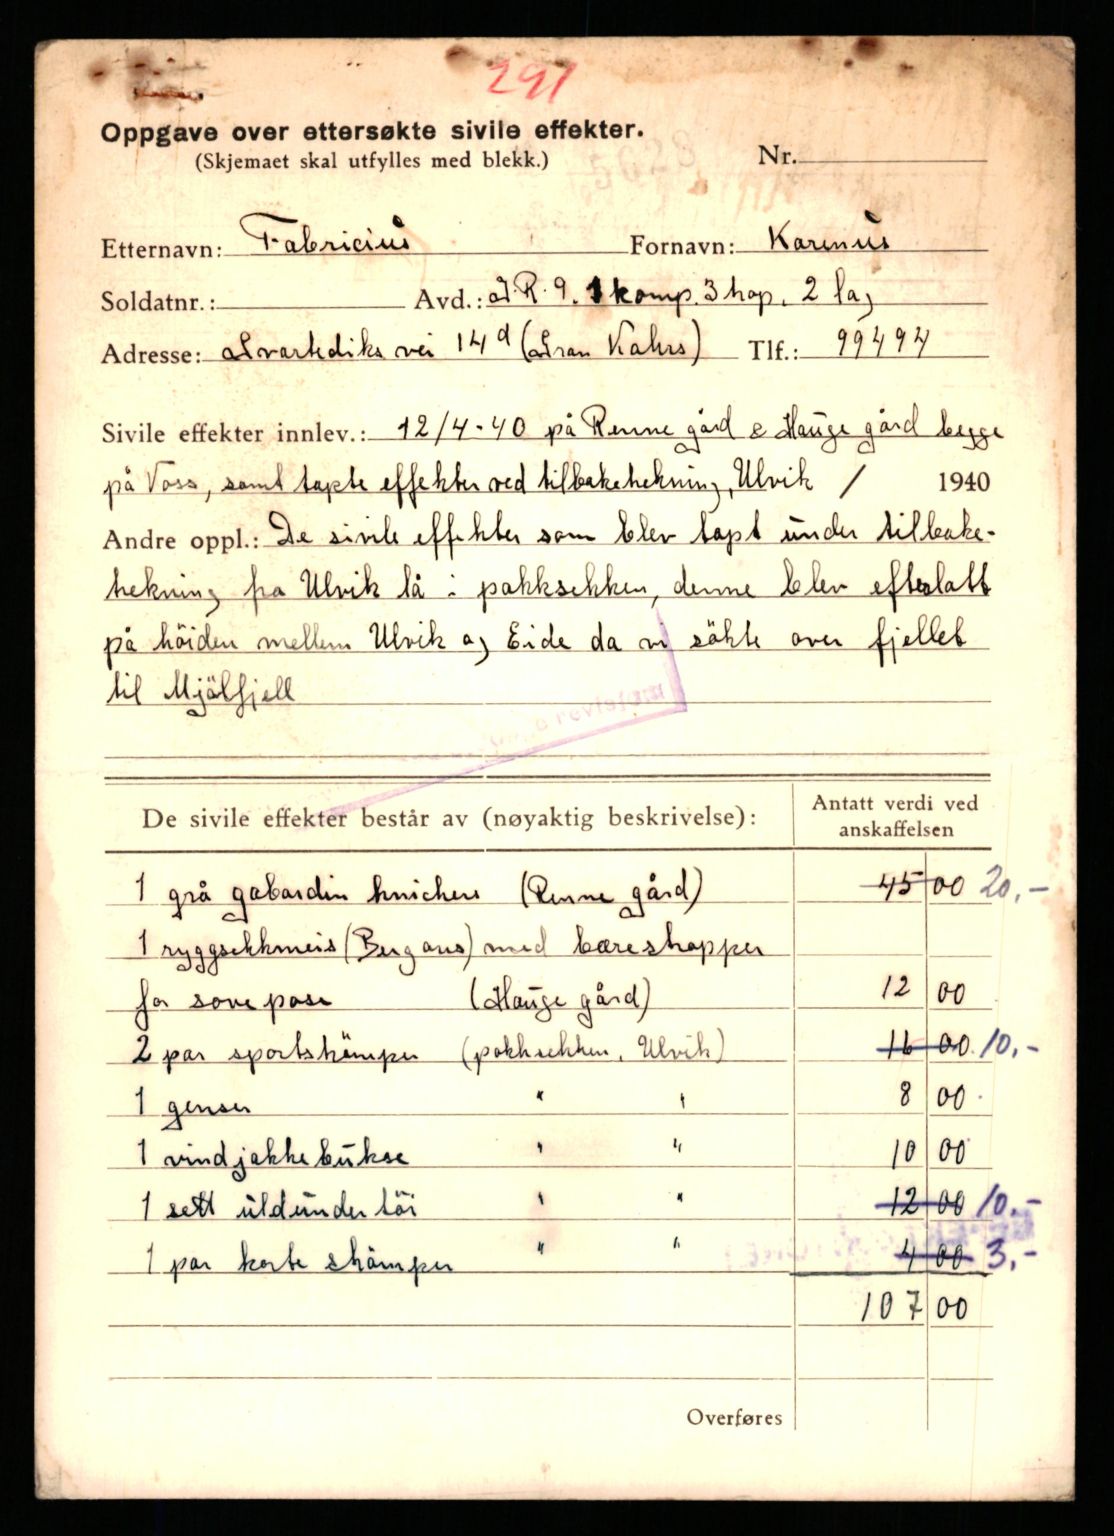 291
Oppgave over ettersøkte sivile effekter.
(Skjemaet skal utfylles med blekk.)
Nr.
Etternavn: Fabricius Fornavn: Karenius
Soldatnr.: Avd.: I.R. 9. 1 komp. 3 trop. 2 lag
Adresse: Svartediks vei 14d (Fran Kahrs) Tlf.: 99494
Sivile effekter innlev.: 12/4-40 på Renne gård & Hauge gård begge
på Voss, samt tapte effekter ved tilbaketrekning, Ulvik / 1940
Andre oppl.: De sivile effekter som blev tapt under tilbake-
trekning fra Ulvik lå i pakksekken, denne blev efterlatt
på höiden mellem Ulvik og Eide da vi sökte over fjellet
til Mjölfjell
revisjon
De sivile effekter består av (nøyaktig beskrivelse): Antatt verdi ved
anskaffelsen
1 grå gabardin knickers (Renne gård) 45 00 20,-
1 ryggsekkmeis (Bergans) med bærestropper
for sovepose (Hauge gård) 12 00
2 par sportströmper (pakksekken, Ulvik) 16 00 10,-
1 genser " " 8 00
1 vindjakkebukse " " 10 00
1 sett uldundertöi " " 12 00 10,-
1 par korte strömper " " 4 00 3,-
107 00
Overføres